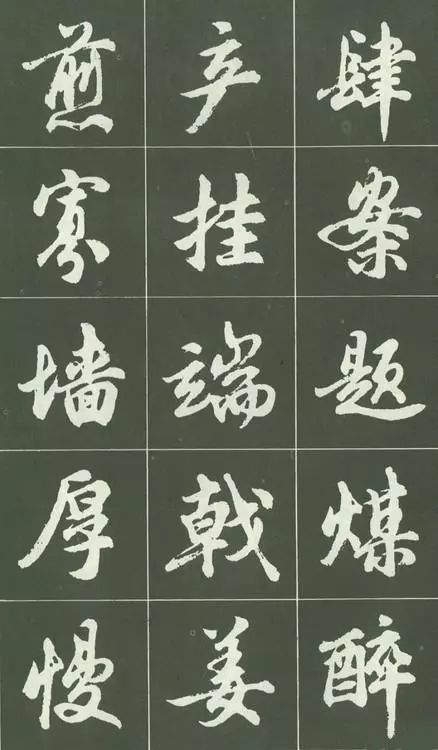 肆案题煤醉
产挂端戟姜
煎寡墙厚慢